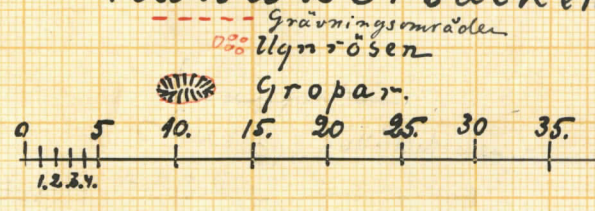 Grävningsområden
Ugnrösen
Gropar.
0 5 10. 15. 20 25. 30 35.
1. 2. 3. 4.